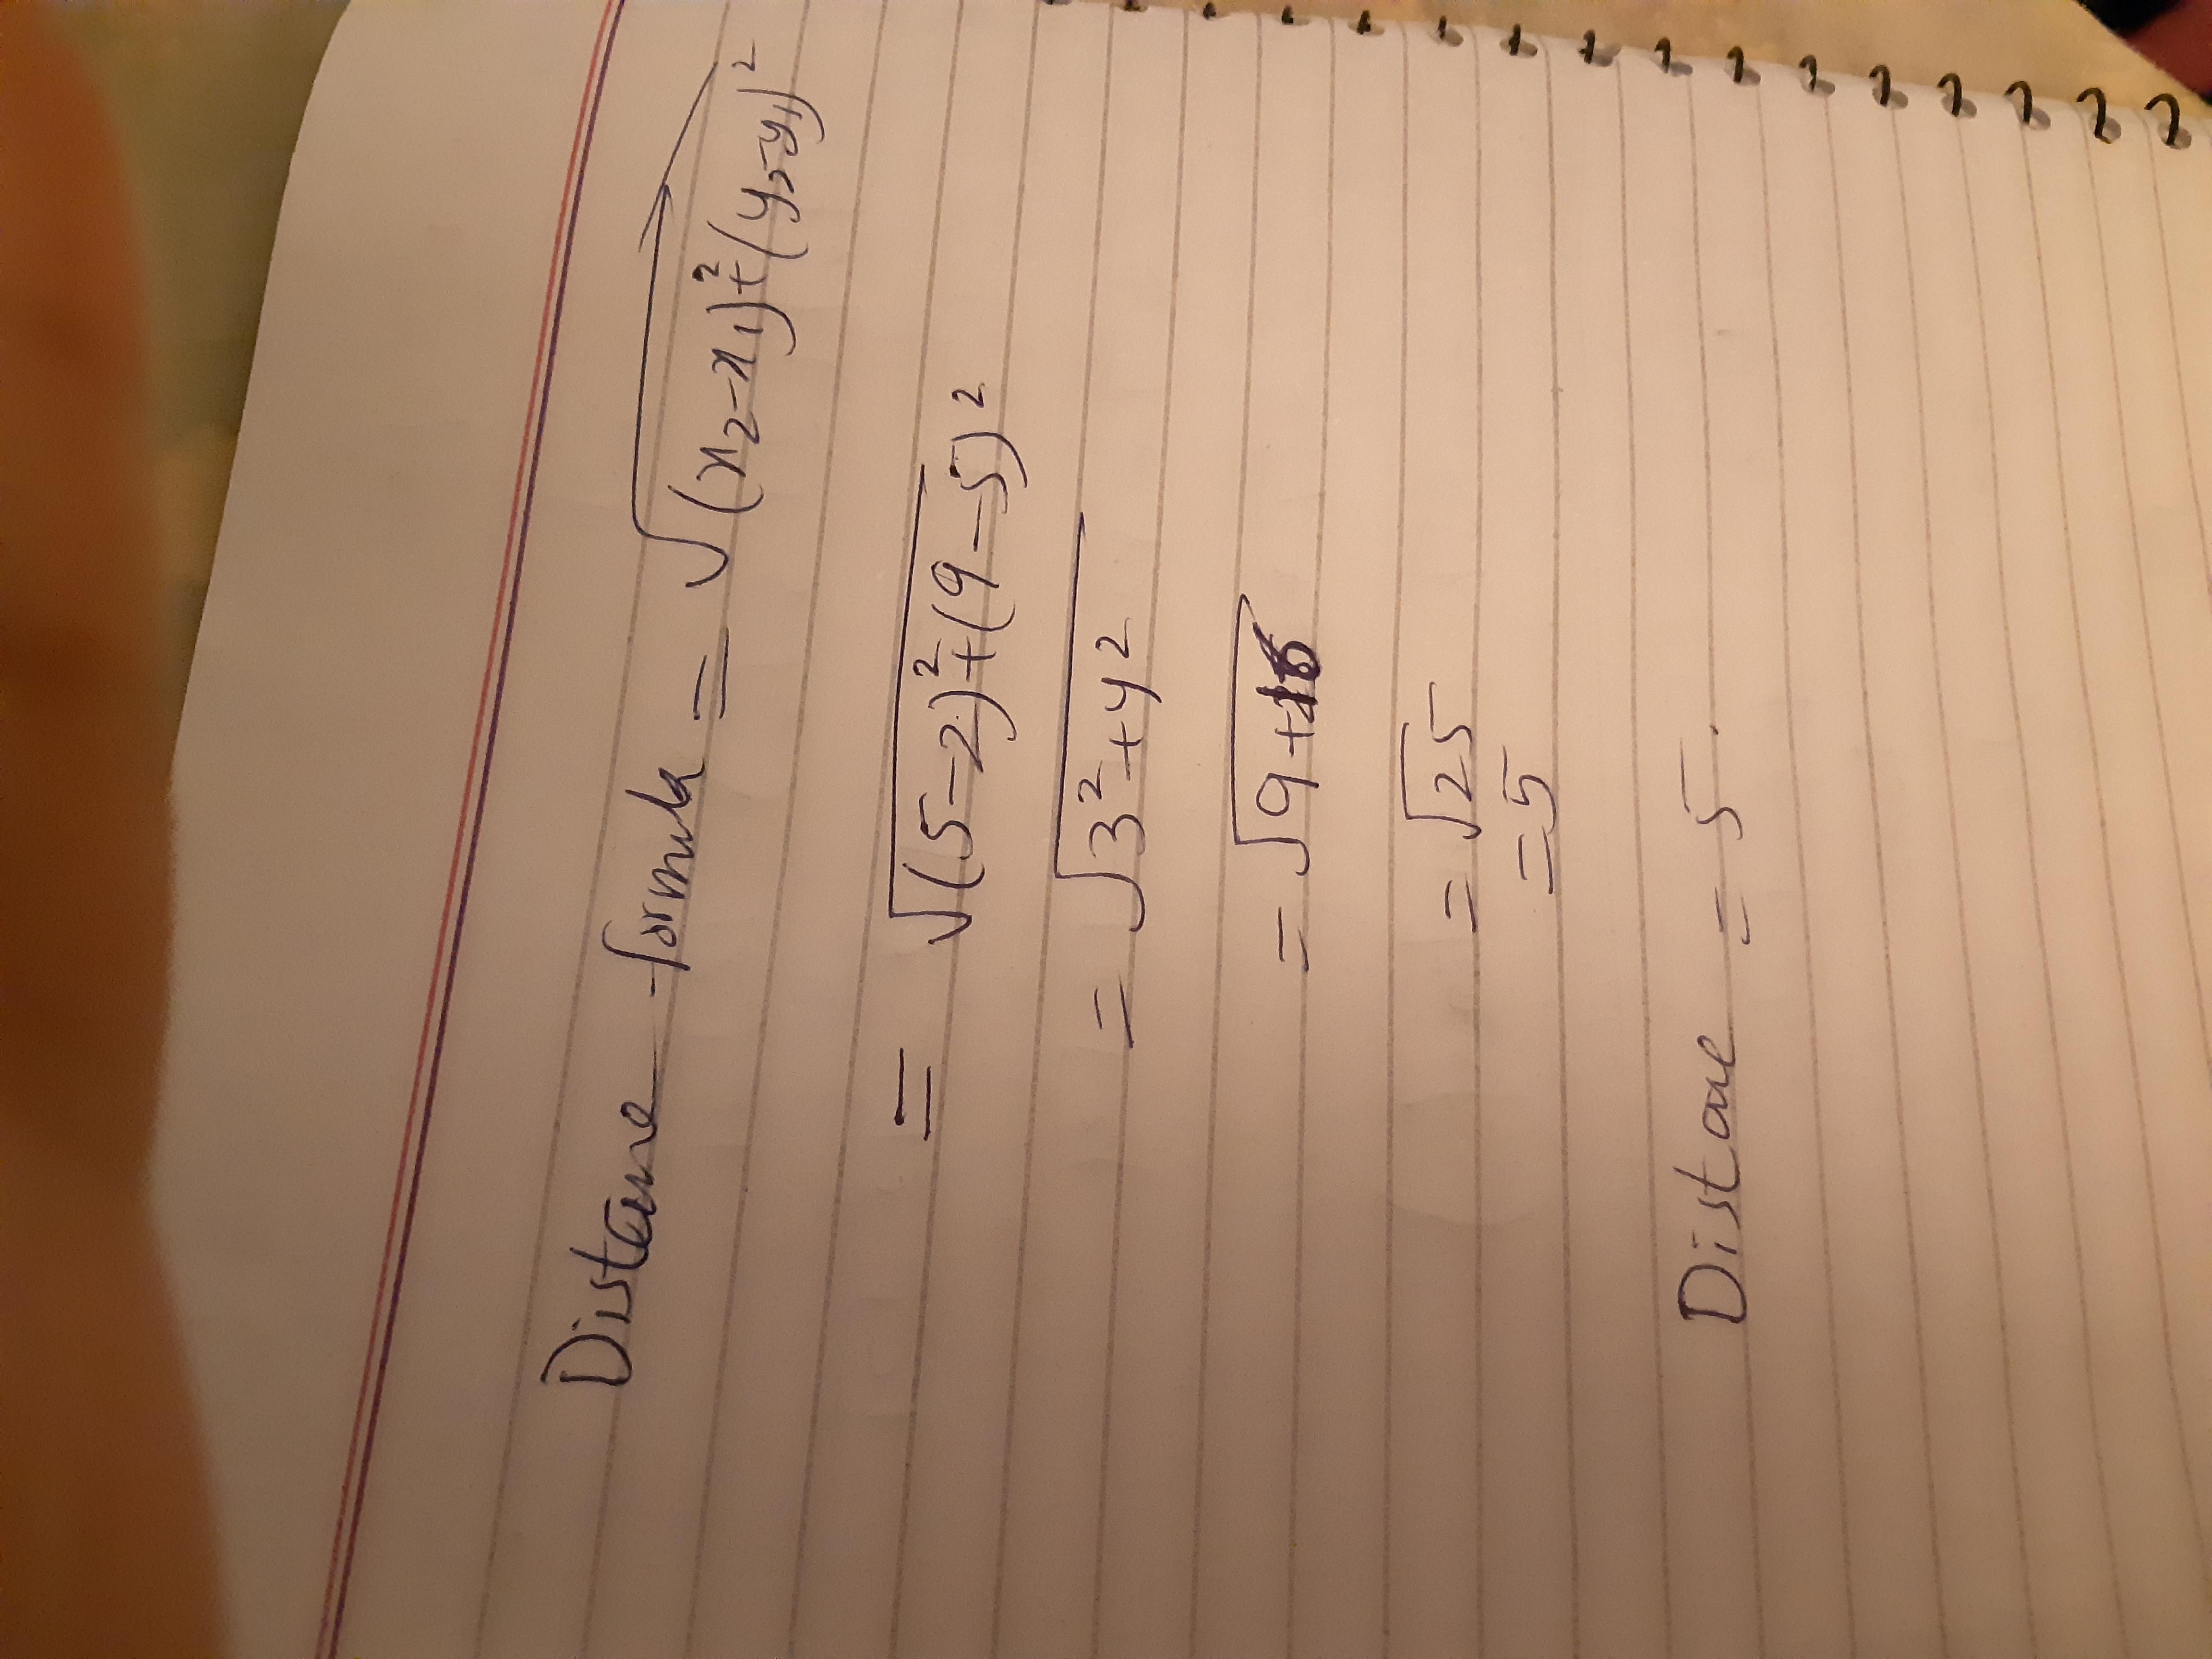 Distance formula = √(x₂-x₁)²+(y₂-y₁)²
= √(5-2)²+(9-5)²
= √3²+4²
= √9+16
= √25
= 5
Distance = 5.